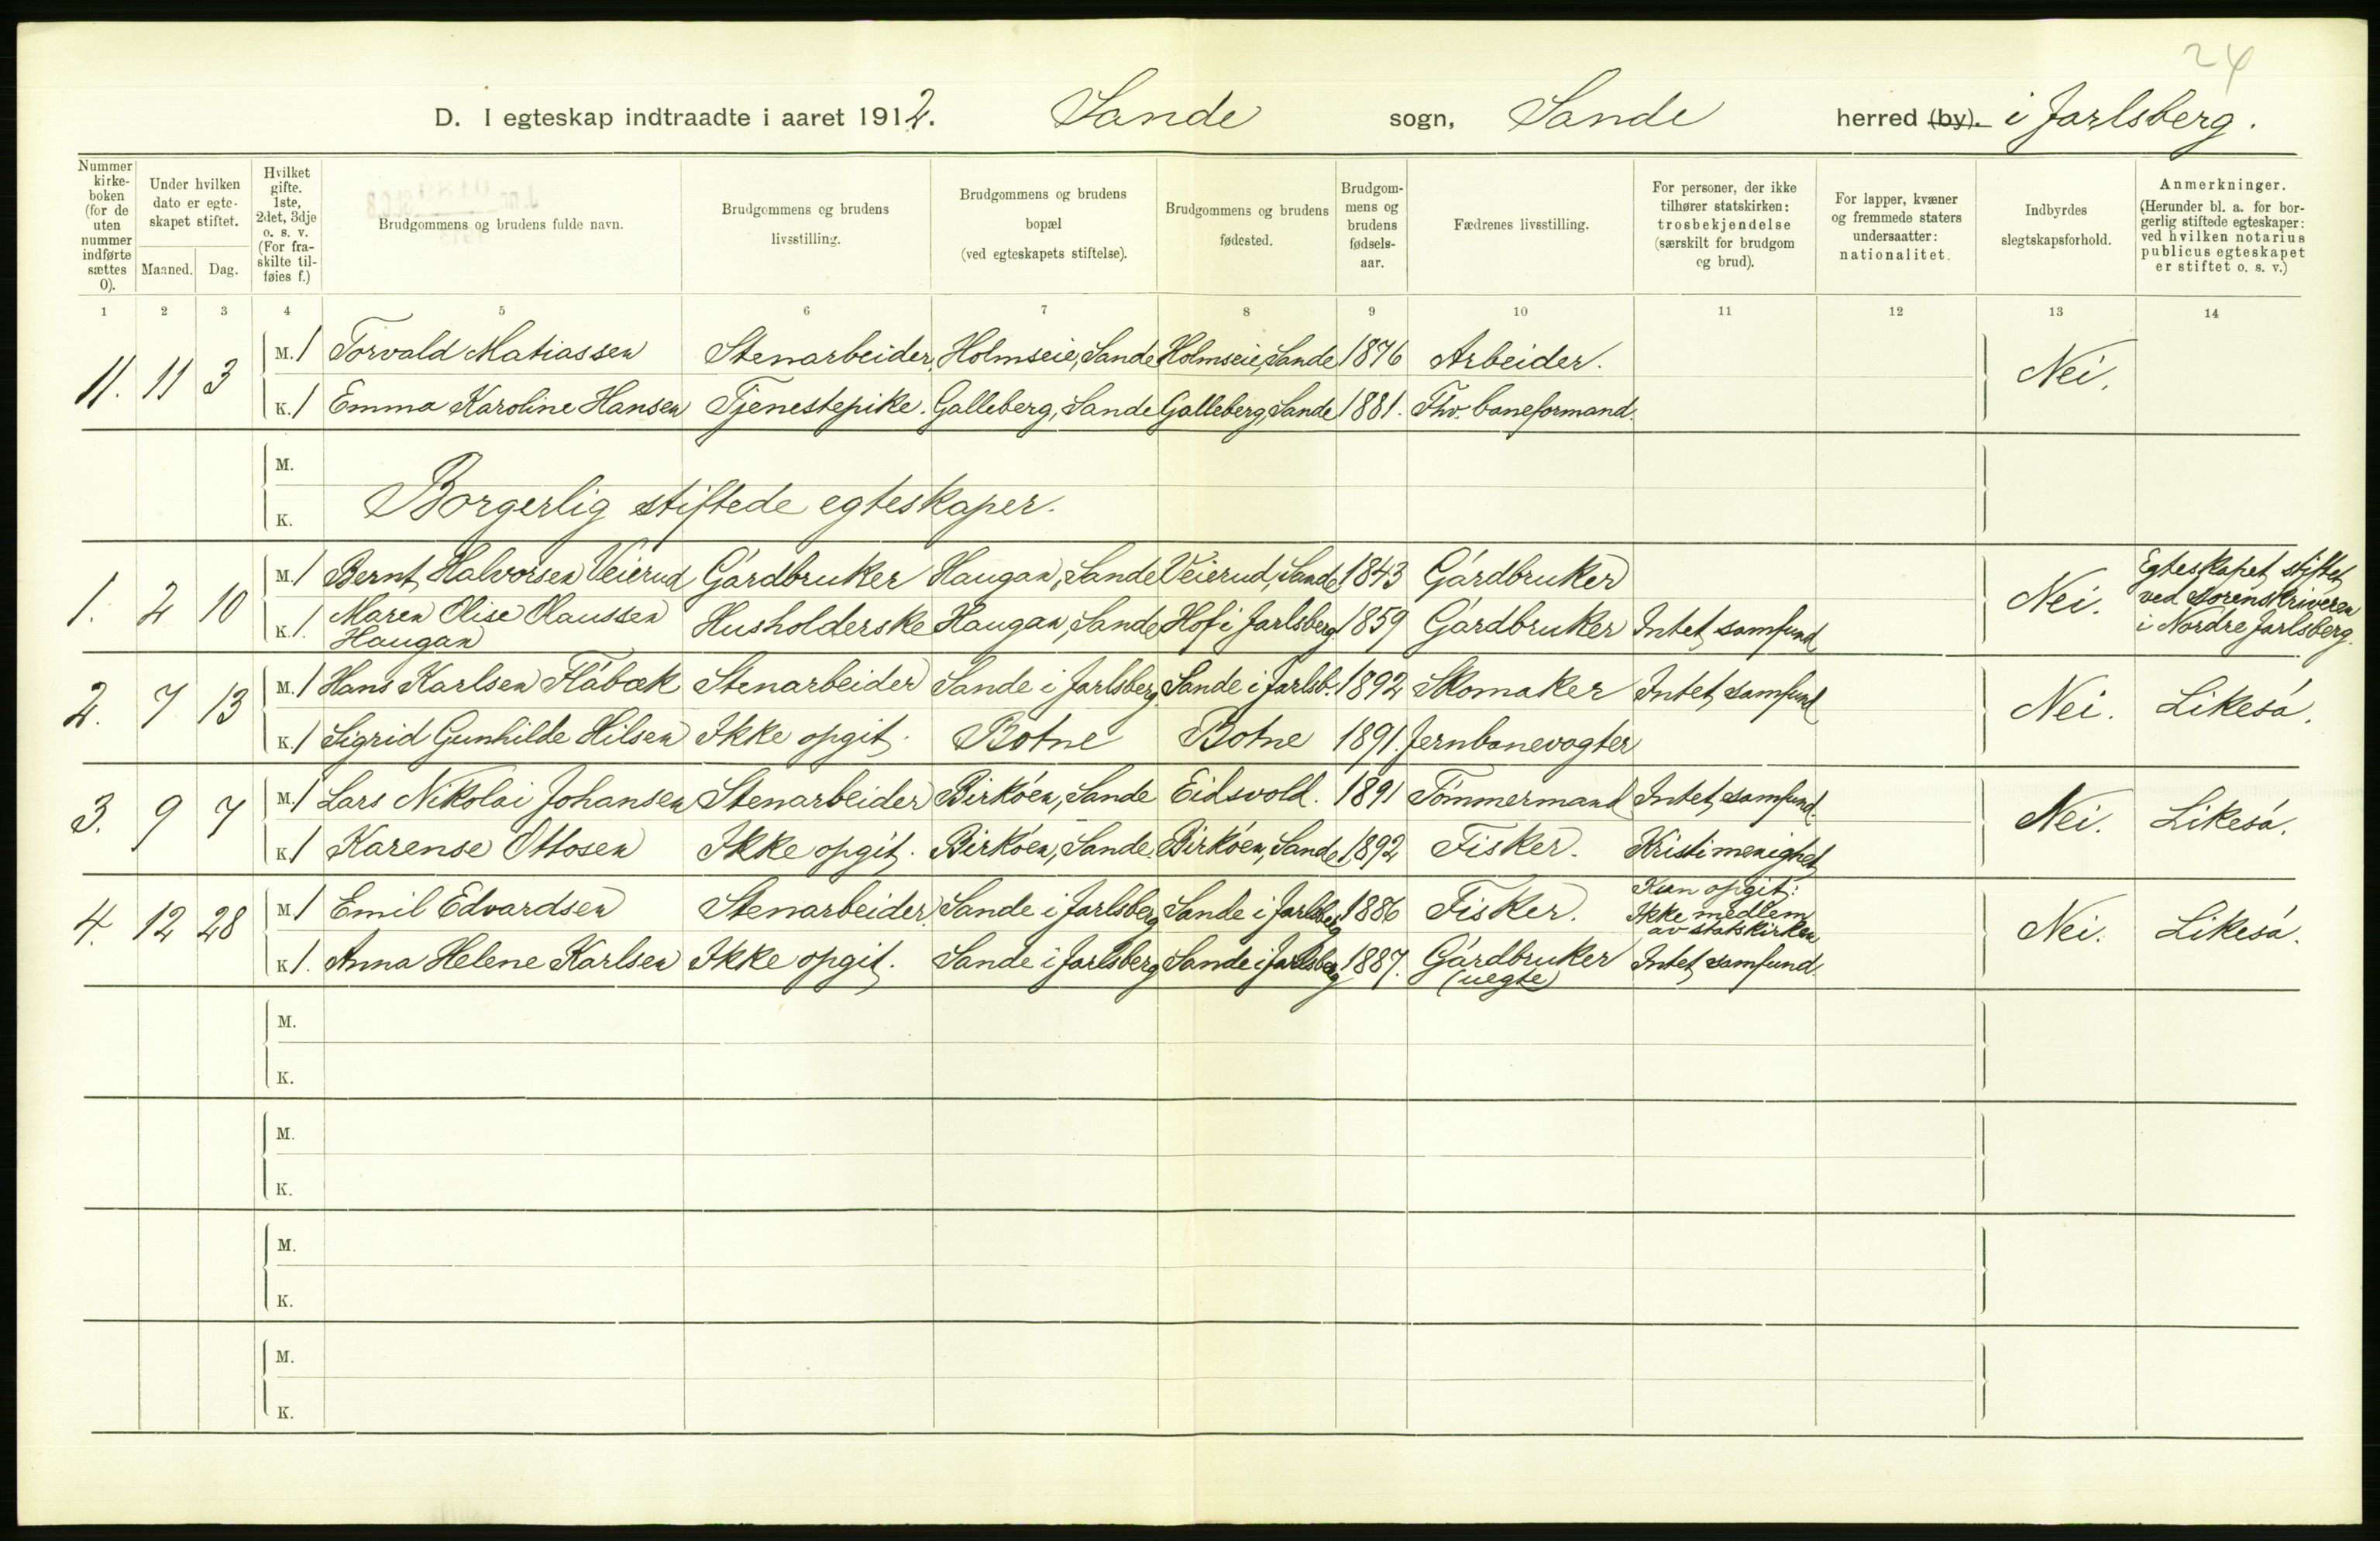 24
D. I egteskap indtraadte i aaret 1912. Sande sogn, Sande herred (by). i Jarlsberg.
Nummer kirkeboken (for de uten nummer indførte sættes 0).
Under hvilken dato er egteskapet stiftet.
Maaned. Dag.
Hvilket gifte. 1ste, 2det, 3dje o. s. v. (For fraskilte tilføies f.)
Brudgommens og brudens fulde navn.
Brudgommens og brudens livsstilling.
Brudgommens og brudens bopæl (ved egteskapets stiftelse).
Brudgommens og brudens fødested.
Brudgommens og brudens fødselsaar.
Fædrenes livsstilling.
For personer, der ikke tilhører statskirken: trosbekjendelse (særskilt for brudgom og brud).
For lapper, kvæner og fremmede staters undersaatter: nationalitet.
Indbyrdes slegtskapsforhold.
Anmerkninger. (Herunder bl. a. for borgerlig stiftede egteskaper: ved hvilken notarius publicus egteskapet er stiftet o. s. v.)
1 2 3 4 5 6 7 8 9 10 11 12 13 14
11. 11 3 M. 1 Torvald Matiassen Stenarbeider. Holmseie, Sande Holmseie, Sande 1876 Arbeider. Nei.
K. 1 Emma Karoline Hansen Tjenestepike. Galleberg, Sande Galleberg, Sande 1881. Fhv. baneformand.
M.
K. Borgerlig stiftede egteskaper.
1. 2 10 M. 1 Bernt Halvorsen Veierud Gårdbruker Haugan, Sande Veierud, Sande 1843 Gårdbruker Nei. Egteskapet stiftet ved sorenskriveren i Nordre Jarlsberg.
K. 1. Maren Olise Olaussen Haugan Husholderske Haugan, Sande Hof i Jarlsberg. 1859 Gårdbruker Intet samfund
2. 7 13 M. 1 Hans Karlsen Flåbæk Stenarbeider Sande i Jarlsberg Sande i Jarlsb. 1892 Skomaker Intet samfund Nei. Likeså.
K. 1 Sigrid Gunhilde Hilsen Ikke opgit. Botne Botne 1891. Jernbanevogter
3. 9 7 M. 1 Lars Nikolai Johansen Stenarbeider Birköen, Sande Eidsvold. 1891 Tömmermand Intet samfund. Nei. Likeså.
K. 1 Karense Ottosen Ikke opgit. Birköen, Sande. Birköen, Sande 1892 Fisker. Kristi menighet
4. 12 28 M. 1 Emil Edvardsen Stenarbeider. Sande i Jarlsberg Sande i Jarlsberg 1886 Fisker. Kun opgit: Ikke medlem av statskirken Nei. Likeså.
K. 1. Anna Helene Karlsen Ikke opgit. Sande i Jarlsberg Sande i Jarlsberg 1887. Gårdbruker (uegte) Intet samfund.
M.
K.
M.
K.
M.
K.
M.
K.